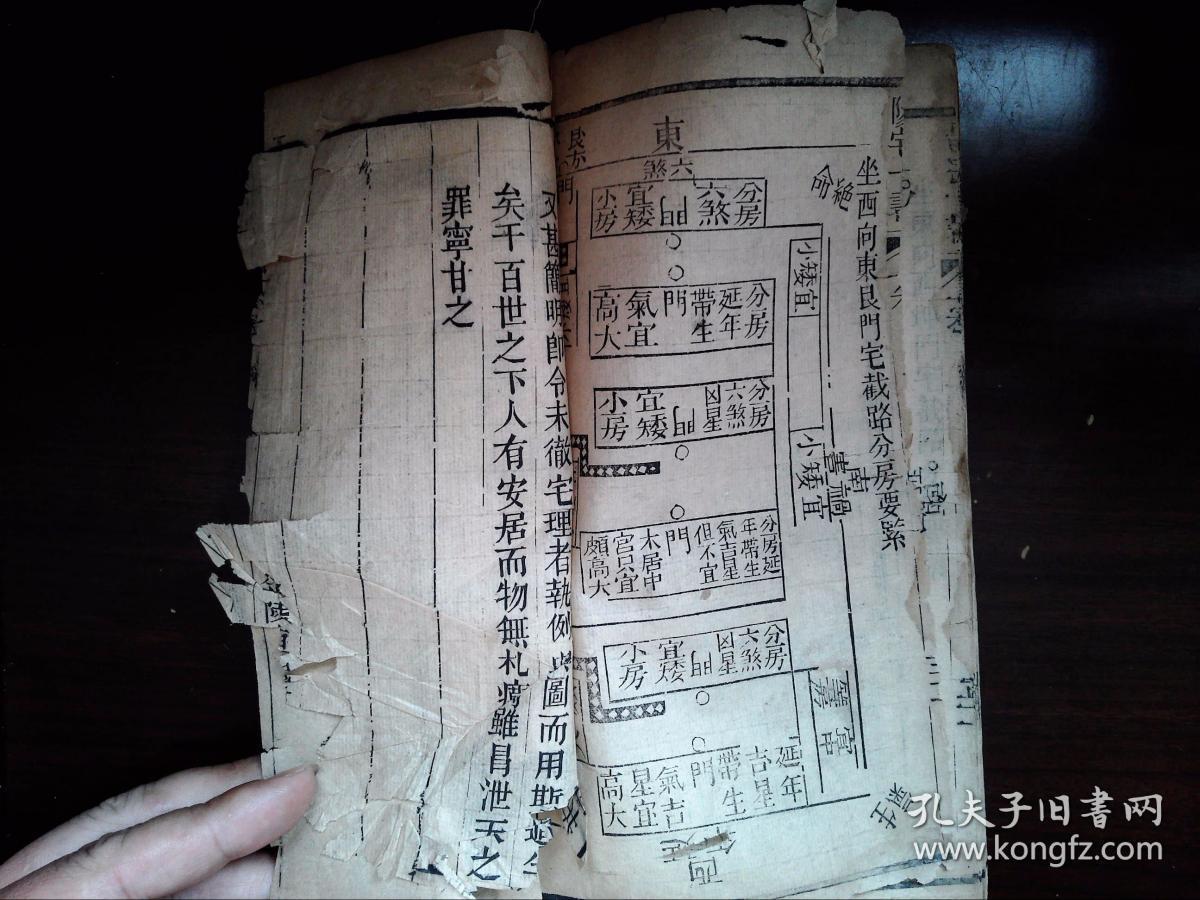 坐西向東艮門宅截路分房要緊
東
艮方
六煞
絕命
分房
六煞
門
宜矮
小房
分房
延年
帶生
門
氣宜
高大
分房
六煞
凶星
門
宜矮
小房
分房延
年帶生
氣吉星
但不宜
門
木居中
宮只宜
頗高大
分房
六煞
凶星
門
宜矮
小房
延年
吉星
帶生
門
氣吉
星宜
高大
宜矮小
宜矮小
南
禍害
生氣
西
甚簡明師令未徹宅理者執例與圖而用斯
矣千百世之下人有安居而物無札瘠雖昌泄天之
罪寧甘之
孔夫子旧書网
www.kongfz.com